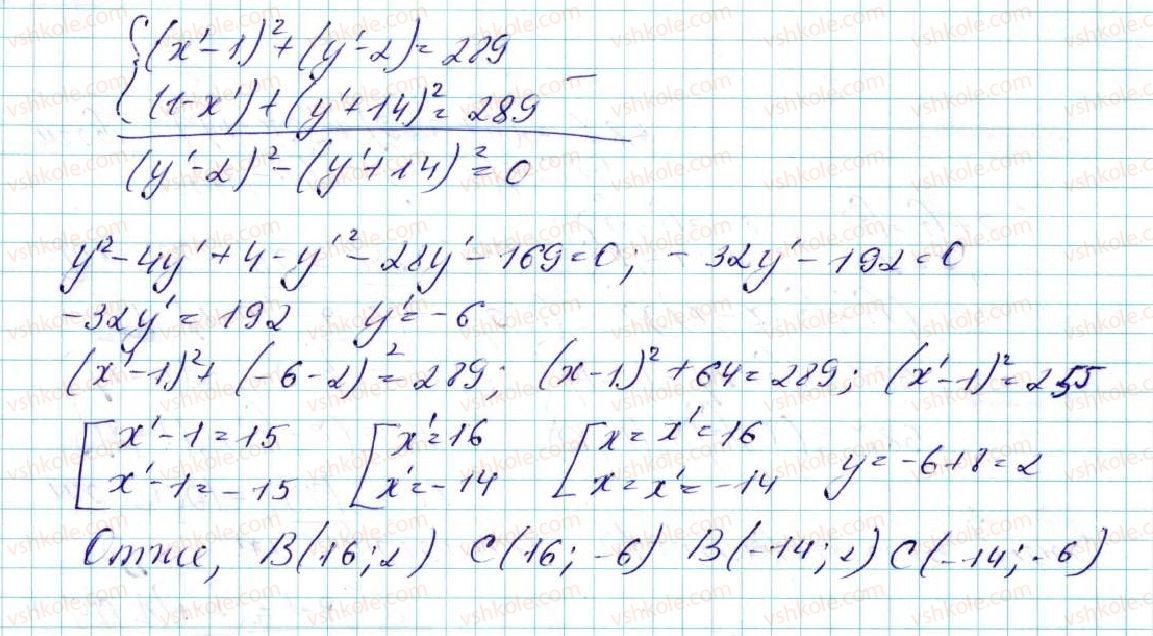 {(x'-1)²+(y'-2)=289
(1-x')+(y'+14)²=289 −
(y'-2)²-(y'+14)²=0
y'²-4y'+4-y'²-28y'-169=0; -32y'-192=0
-32y'=192 y'=-6
(x'-1)²+(-6-2)²=289; (x-1)²+64=289; (x'-1)²=255
[x'-1=15 [x'=16 [x=x'=16
x'-1=-15 x'=-14 x=x'=-14 y=-6+8=2
Отже, B(16;2) C(16;-6) B(-14;2) C(-14;-6)
vshkole.com